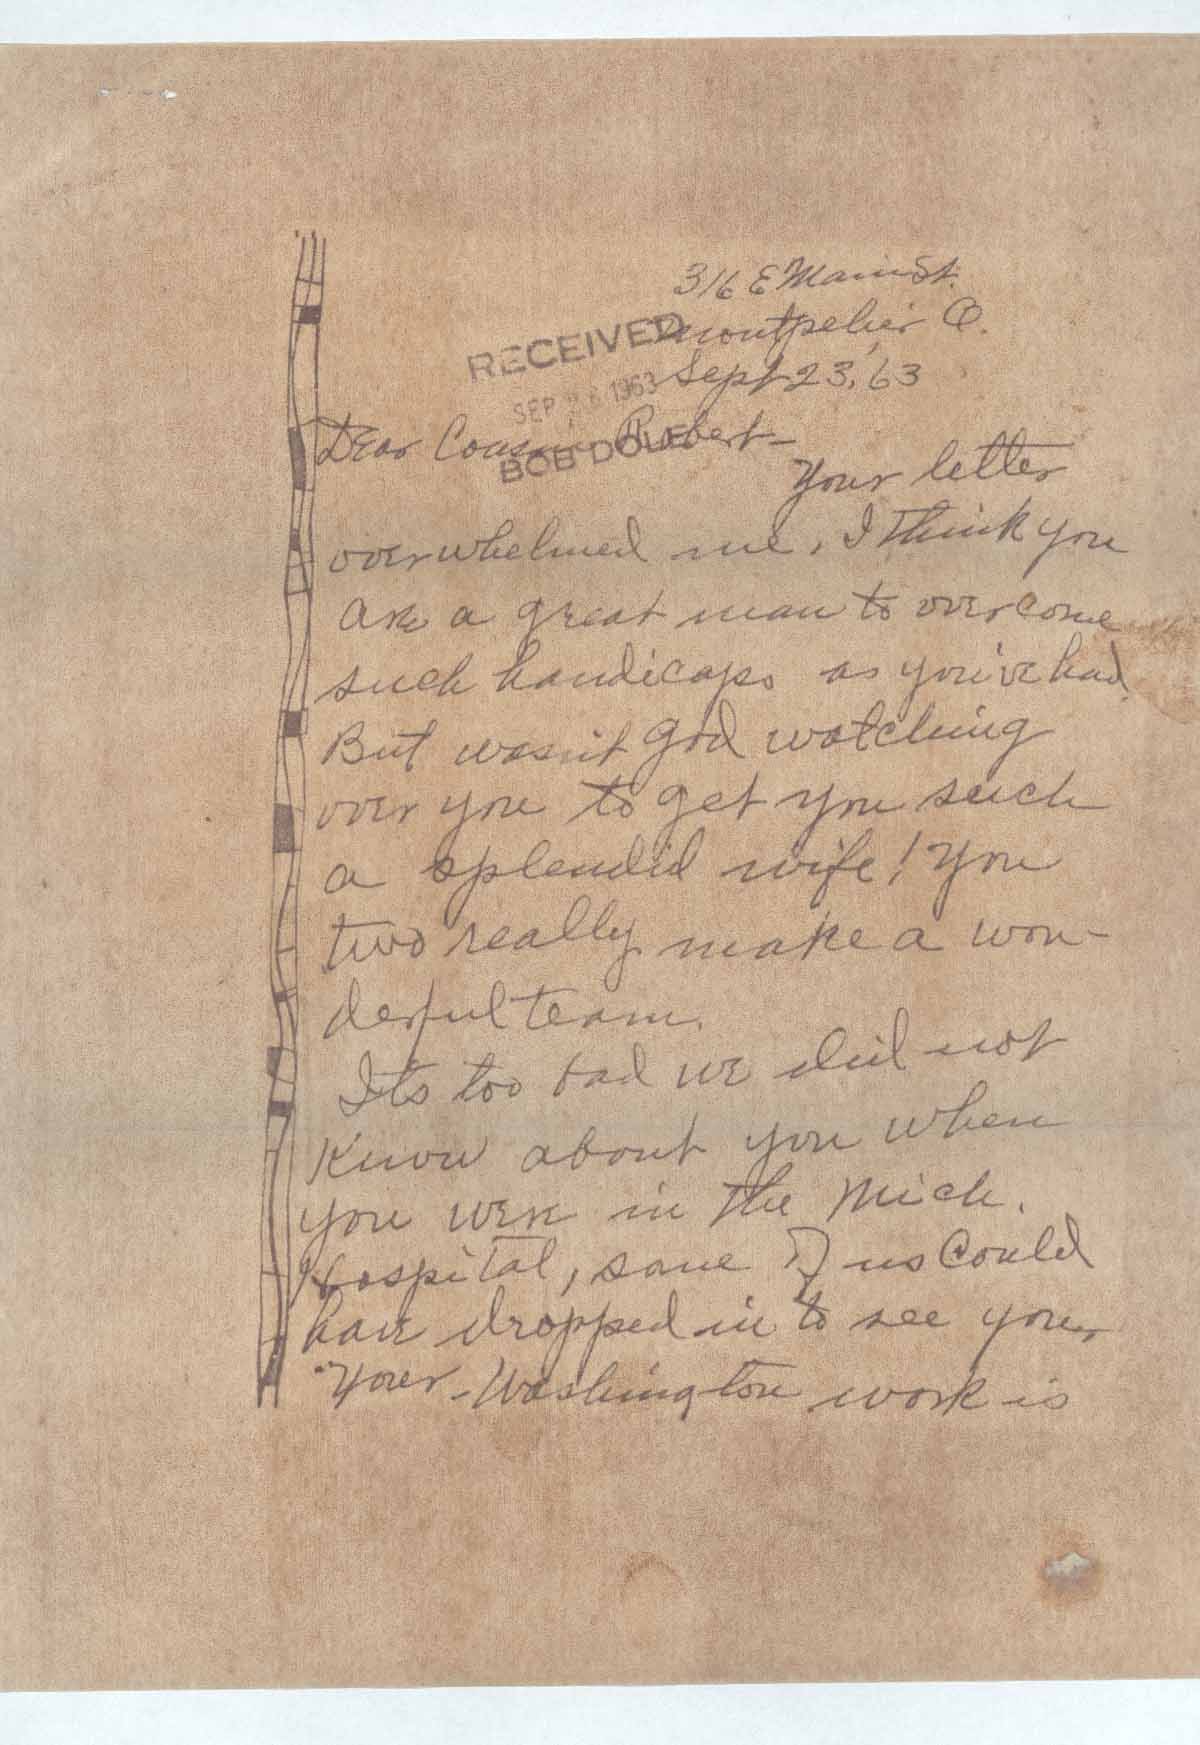 316 E Main St.
Montpelier O.
Sept 23, 63
RECEIVED
SEP 26 1963
BOB DOLE
Dear Cousin Robert-
Your letter
overwhelmed me. I think you
are a great man to overcome
such handicaps as you've had.
But wasn't God watching
over you to get you such
a splendid wife! You
two really make a won-
derful team.
Its too bad we did not
know about you when
you were in the Mich.
hospital, some of us could
have dropped in to see you.
Your Washington work is